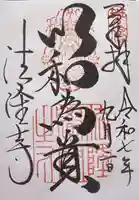 奉拝
令和七年
九月
以和為貴
法隆寺